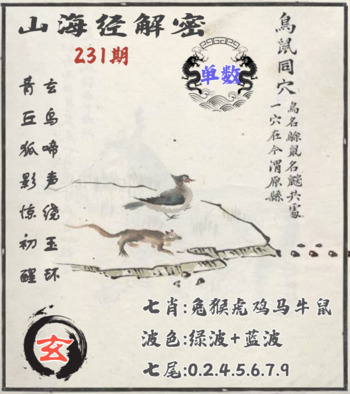 山海经解密
231期
单数
鳥鼠同穴
鸟名鵌鼠名鼵共處
一穴在今渭原縣
玄鸟啼声绕玉环
青丘狐影惊初醒
玄
七肖:兔猴虎鸡马牛鼠
波色:绿波+蓝波
七尾:0.2.4.5.6.7.9